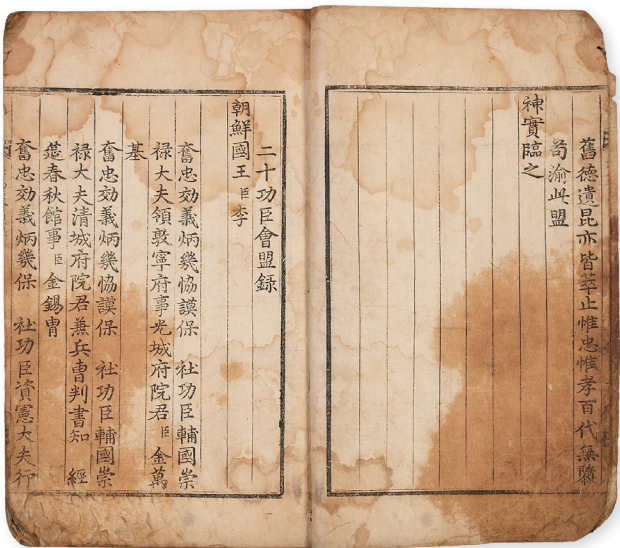 舊德遺昆亦皆萃止惟忠惟孝百代無
苟渝此盟
神實臨之
二十功臣會盟錄
朝鮮國王臣李
奮忠効義炳幾協謨保 社功臣輔國崇
祿大夫領敦寧府事光城府院君臣金萬
基
奮忠効義炳幾協謨保 社功臣輔國崇
祿大夫清城府院君兼兵曹判書知 經
筵春秋館事臣金錫冑
奮忠効義炳幾保 社功臣資憲大夫行